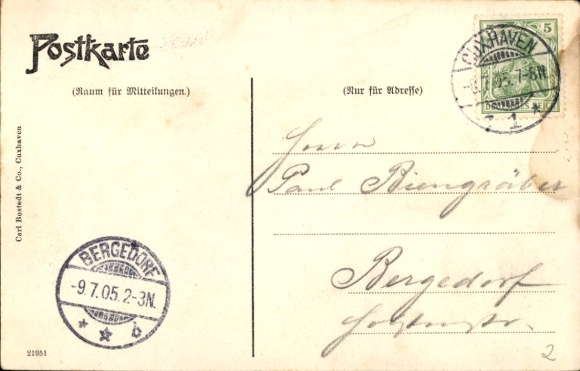 Postkarte
(Raum für Mitteilungen.)
(Nur für Adresse)
CUXHAVEN
7-8N.
* 1 *
5
DEUTSCHES REICH
Carl Rostedt & Co., Cuxhaven
Herrn
Paul Biengräber
Bergedorf
BERGEDORF
-9.7.05.2-3N.
* * b
21951
2